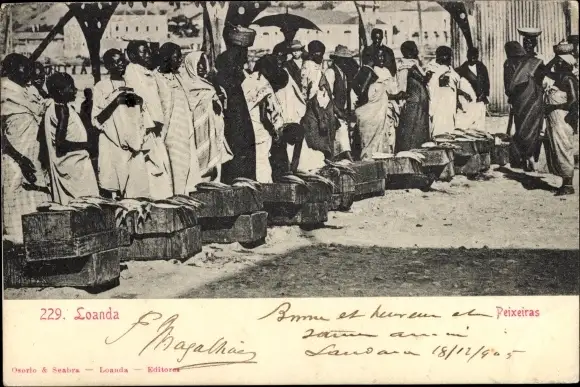 229. Loanda
Peixeiras
F. Magalhães
Bonne et heureux et
Loanda 18/12/905
Osorio & Seabra — Loanda — Editores